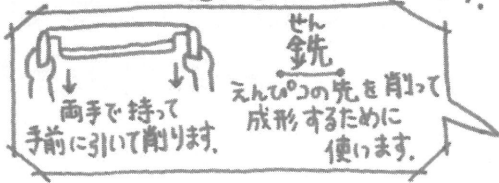 両手で持って
手前に引いて削ります。
せん
銑
えんぴつの先を削って
成形するために
使います。